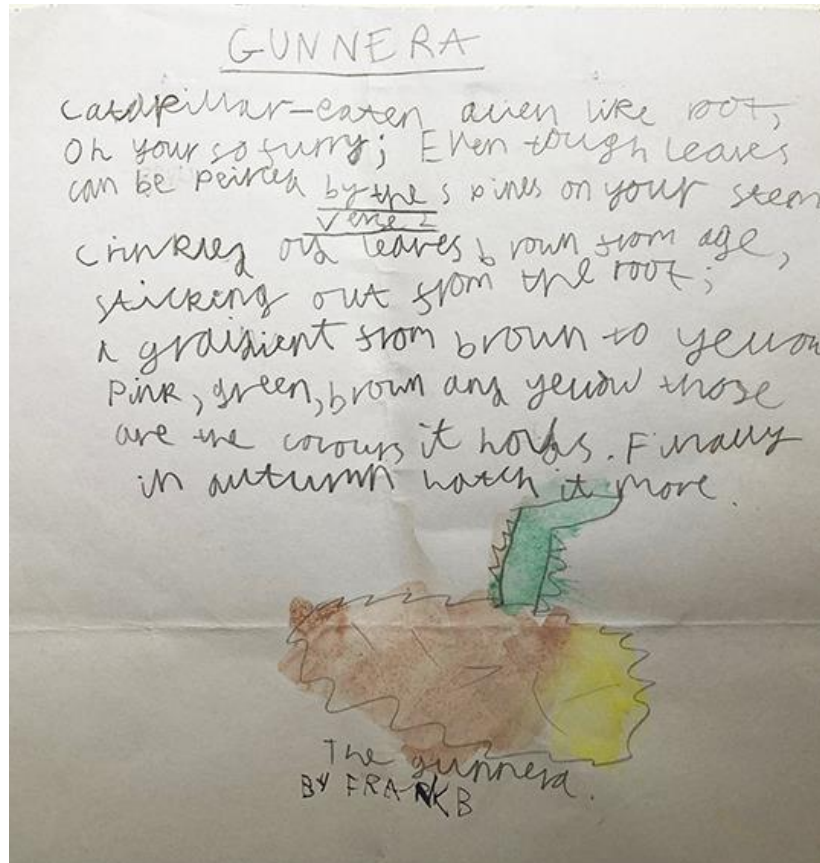 GUNNERA
Catarpillar-eaten alien like root,
Oh your so furry; Even tough leaves
can be peirced by the spines on your stem
Verse 2
Crinkley old leaves brown from age,
sticking out from the root;
A gradient from brown to yellow
Pink, green, brown and yellow those
are the colours it holds. Finally
in autumn watch it more.
The gunnera.
BY FRANK B